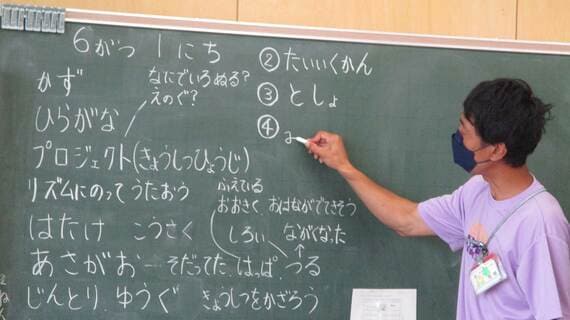 6がつ 1にち
かず
なにでいろぬる?
えのぐ?
ひらがな
プロジェクト(きょうしつひょうじ)
リズムにのって うたおう
はたけ こうさく
ふえている
おおきく おはながでてきそう
しろい ながくなった
あさがお…そだってた はっぱ つる
じんとり ゆうぐ きょうしつをかざろう
②たいいくかん
③としょ
④